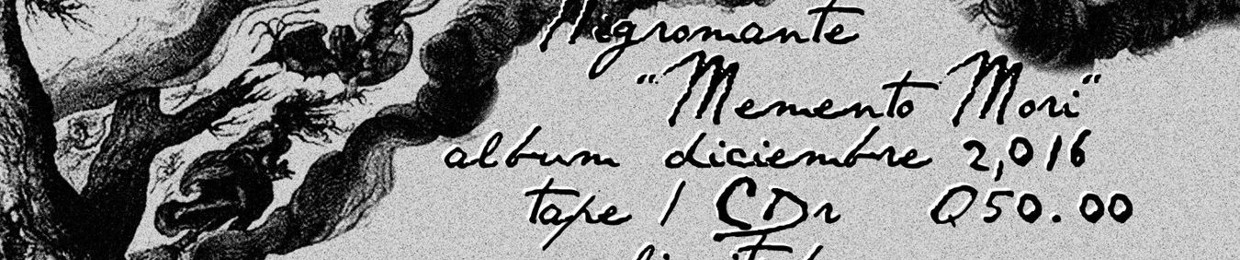 Nigromante
"Memento Mori"
album diciembre 2,016
tape / CDr Q50.00